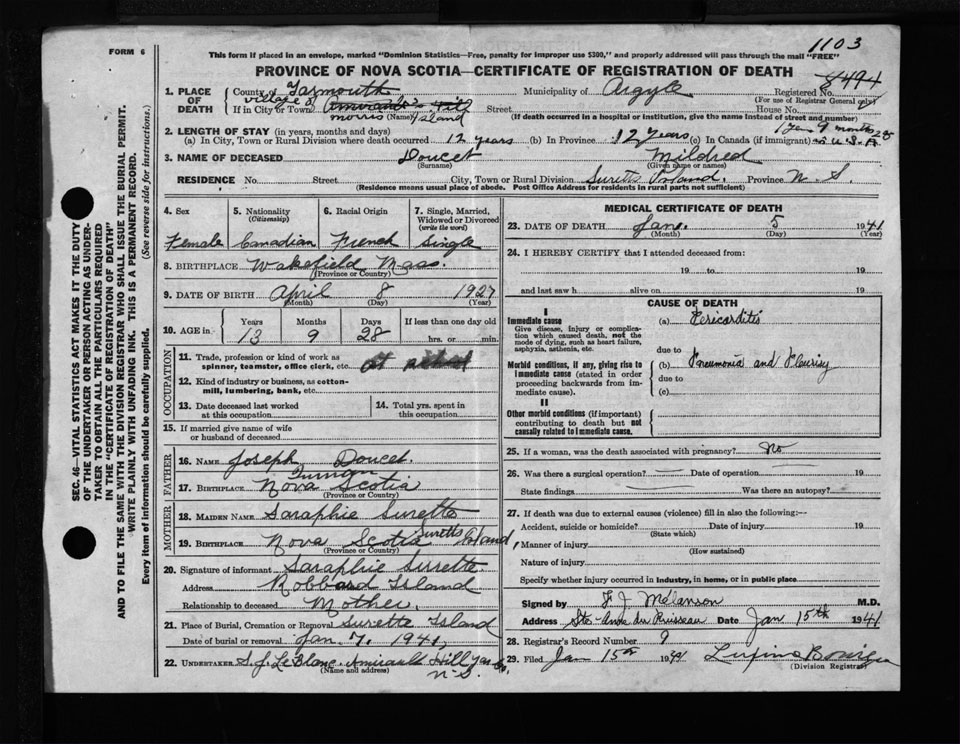 FORM 6
This form if placed in an envelope, marked "Dominion Statistics—Free, penalty for improper use $300," and properly addressed will pass through the mail "FREE"
1103
PROVINCE OF NOVA SCOTIA—CERTIFICATE OF REGISTRATION OF DEATH
8494
1. PLACE OF DEATH
County of Yarmouth
Municipality of Argyle
Registered No.
(For use of Registrar General only)
village of
If in City or Town Amirault's Hill Street House No.
Morris Island
(Name)
(If death occurred in a hospital or institution, give the name instead of street and number)
2. LENGTH OF STAY (in years, months and days)
1 year 9 months 28
(a) In City, Town or Rural Division where death occurred 12 years (b) In Province 12 years (c) In Canada (if immigrant) U.S.A.
3. NAME OF DECEASED Doucet Mildred
(Surname) (Given name or names)
RESIDENCE No. Street City, Town or Rural Division Suretts Island. Province N. S.
(Residence means usual place of abode. Post Office Address for residents in rural parts not sufficient)
4. Sex
Female
5. Nationality (Citizenship)
Canadian
6. Racial Origin
French
7. Single, Married, Widowed or Divorced (write the word)
Single
8. BIRTHPLACE Wakefield Mass.
(Province or Country)
9. DATE OF BIRTH April 8 1927
(Month) (Day) (Year)
10. AGE in Years Months Days If less than one day old
13 9 28 hrs. or min.
OCCUPATION
11. Trade, profession or kind of work as spinner, teamster, office clerk, etc. at school
12. Kind of industry or business, as cotton-mill, lumbering, bank, etc.
13. Date deceased last worked at this occupation
14. Total yrs. spent in this occupation
15. If married give name of wife or husband of deceased
FATHER
16. NAME Joseph Doucet
17. BIRTHPLACE Nova Scotia
(Province or Country)
MOTHER
18. MAIDEN NAME Saraphie Surette
19. BIRTHPLACE Nova Scotia Suretts Island,
(Province or Country)
20. Signature of informant Saraphie Surrette
Address Robbard Island
Relationship to deceased Mother.
21. Place of Burial, Cremation or Removal Surette Island
Date of burial or removal Jan 7, 1941,
22. UNDERTAKER S.J. LeBlanc. Amirault Hill Yar Co,
N-S.
(Name and address)
MEDICAL CERTIFICATE OF DEATH
23. DATE OF DEATH Jan. 5 1941
(Month) (Day) (Year)
24. I HEREBY CERTIFY that I attended deceased from:
19 to 19
and last saw h alive on 19
CAUSE OF DEATH
I
Immediate cause
Give disease, injury or complication which caused death, not the mode of dying, such as heart failure, asphyxia, asthenia, etc.
(a) Pericarditis
due to
Morbid conditions, if any, giving rise to immediate cause (stated in order proceeding backwards from immediate cause).
(b) Pneumonia and Pleurisy
due to
(c)
II
Other morbid conditions (if important) contributing to death but not causally related to immediate cause.
25. If a woman, was the death associated with pregnancy? No
26. Was there a surgical operation? Date of operation 19
State findings Was there an autopsy?
27. If death was due to external causes (violence) fill in also the following:—
Accident, suicide or homicide? Date of injury 19
(State which)
Manner of injury
(How sustained)
Nature of injury
Specify whether injury occurred in industry, in home, or in public place
Signed by F J Melanson M.D.
Address Ste-Anne du Ruisseau Date Jan 15th 1941
28. Registrar's Record Number 9
29. Filed Jan 15th 1941
(Division Registrar)
SEC. 46—VITAL STATISTICS ACT MAKES IT THE DUTY OF THE UNDERTAKER OR PERSON ACTING AS UNDERTAKER TO OBTAIN ALL THE PARTICULARS REQUIRED IN THE "CERTIFICATE OF REGISTRATION OF DEATH" AND TO FILE THE SAME WITH THE DIVISION REGISTRAR WHO SHALL ISSUE THE BURIAL PERMIT.
WRITE PLAINLY WITH UNFADING INK. THIS IS A PERMANENT RECORD.
Every item of information should be carefully supplied. (See reverse side for instructions.)